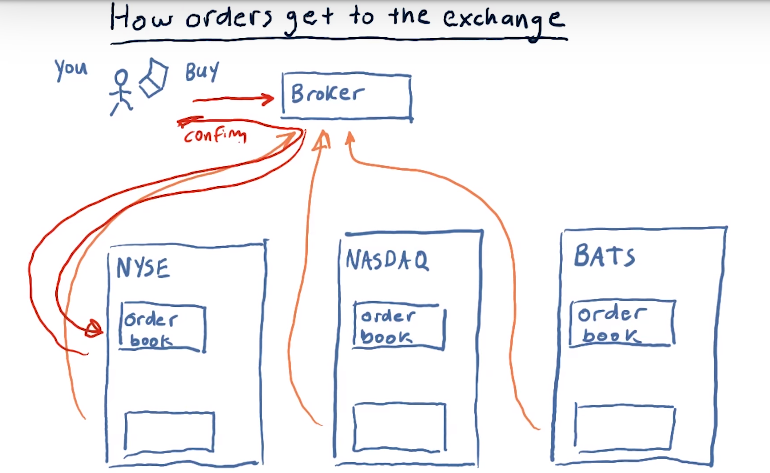 How orders get to the exchange
You
Buy
Broker
confirm
NYSE
order
book
NASDAQ
order
book
BATS
order
book